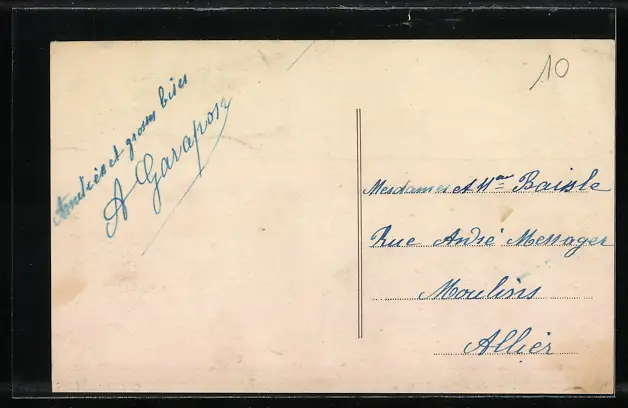 Amitiés et grosses bises
A Garapon
10
Mesdames et Mme Baisle
Rue André Messager
Moulins
Allier